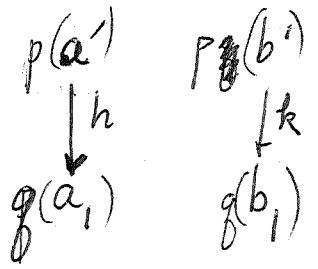 p(a') p(b')
h k
g(a₁) g(b₁)